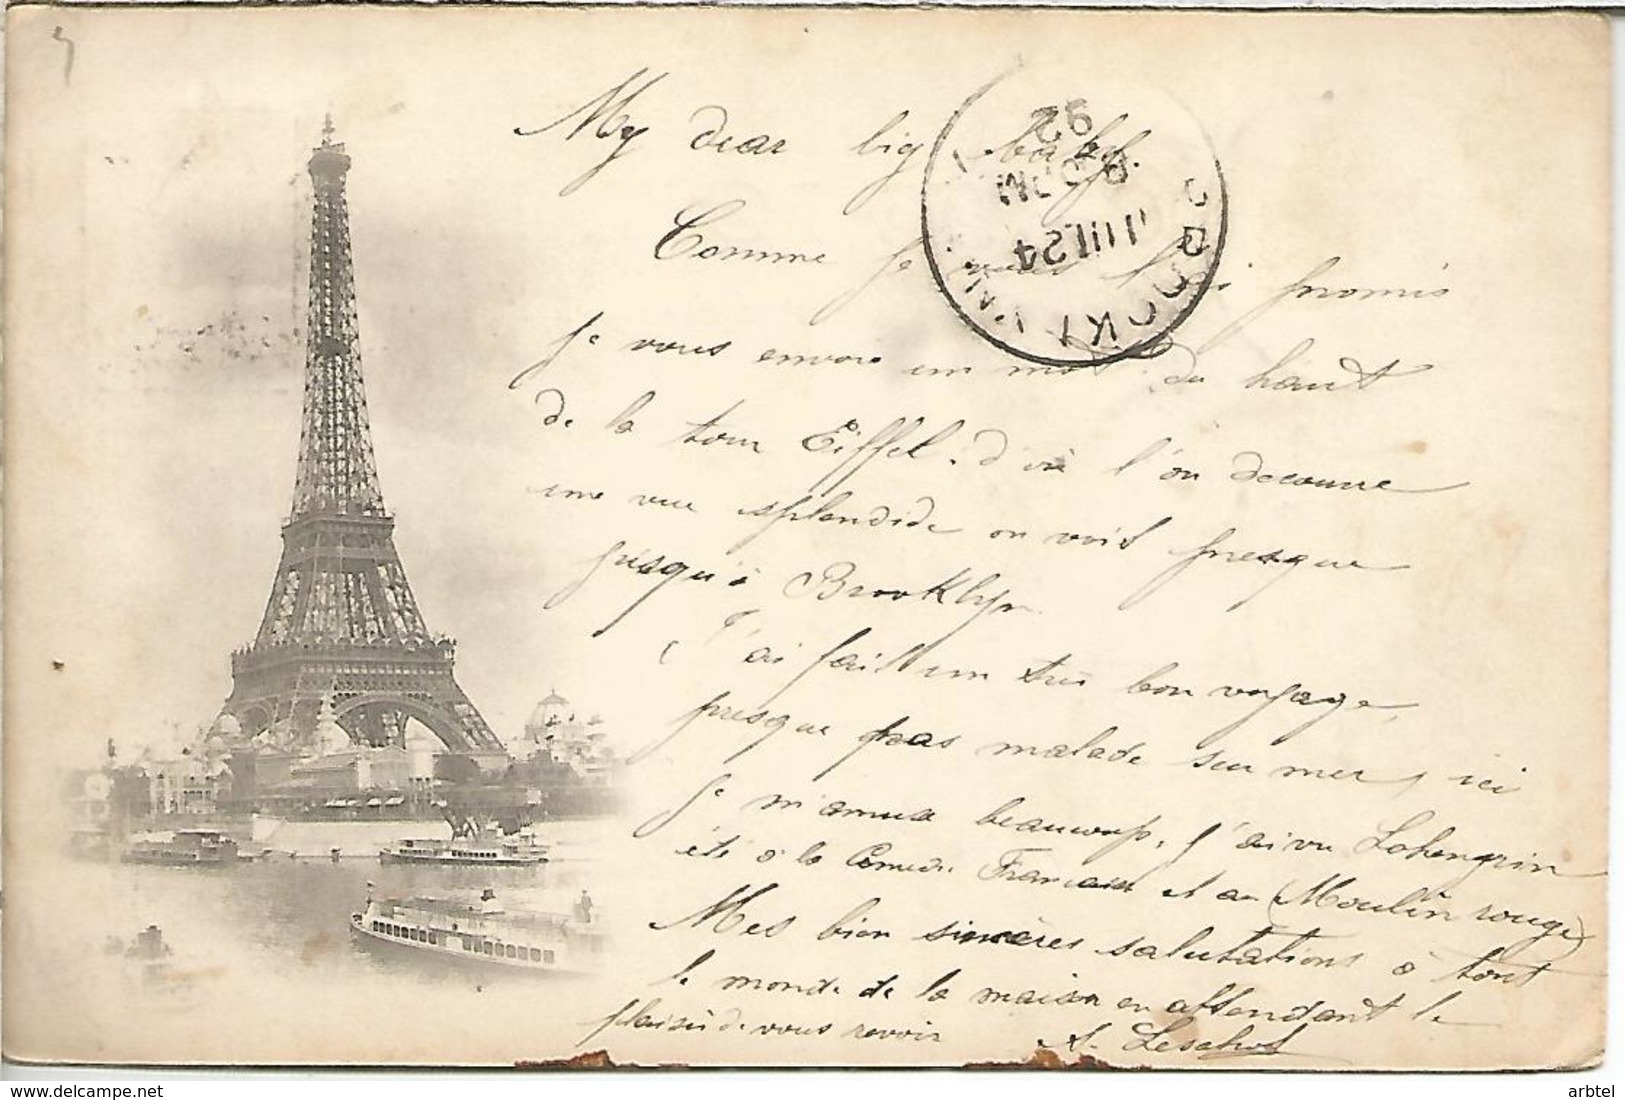 My dear big baby.
Comme je vous l'ai promis
je vous envoie un mot du haut
de la tour Eiffel. d'où l'on découvre
une vue splendide on voit presque
jusqu'à Brooklyn.
J'ai fait un très bon voyage,
presque pas malade sur mer, ici
je m'amuse beaucoup, j'ai vu Lohengrin
été à la Comedie Française et au (Moulin rouge)
Mes bien sincères salutations à tout
le monde de la maison en attendant le
plaisir de vous revoir A.
BROOKLYN, N.Y.
JUL 24
92
arbtel